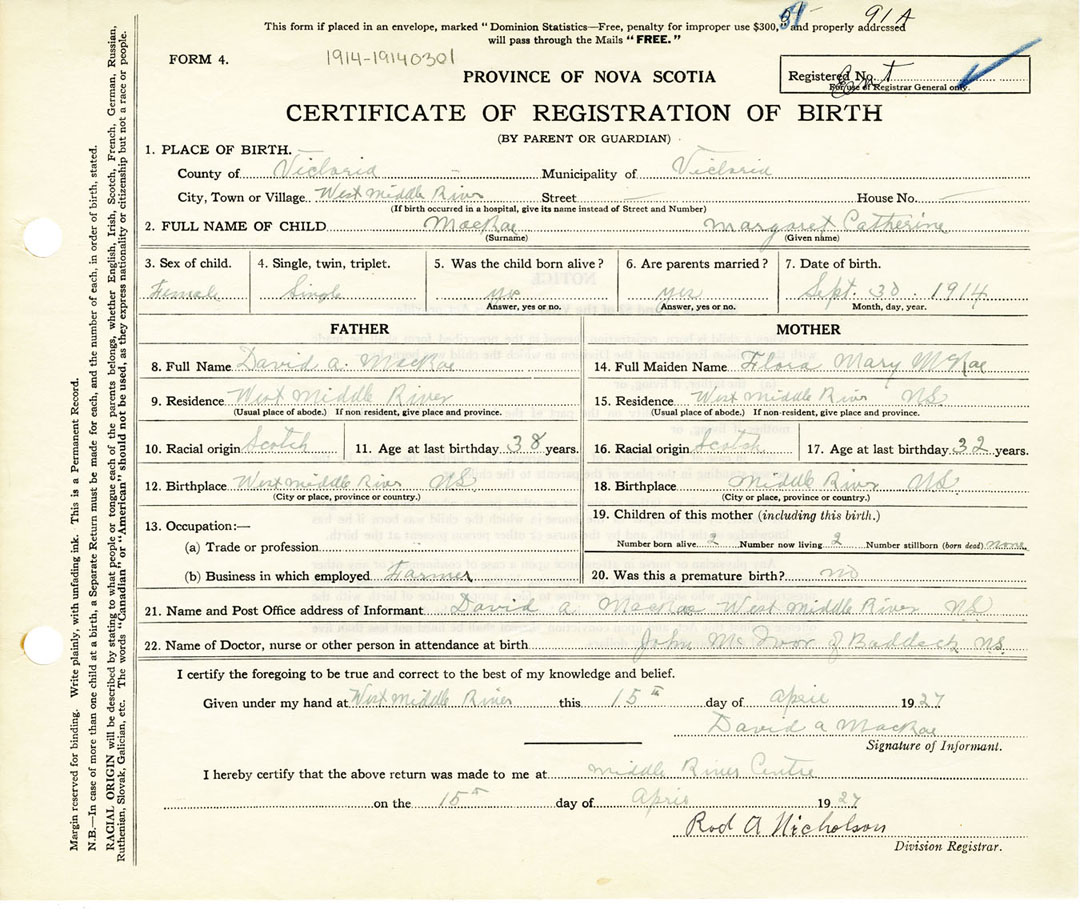 91A
This form if placed in an envelope, marked "Dominion Statistics—Free, penalty for improper use $300," and properly addressed
will pass through the Mails "FREE."
FORM 4.
1914-19140301
PROVINCE OF NOVA SCOTIA
Registered No.
For use of Registrar General only.
CERTIFICATE OF REGISTRATION OF BIRTH
(BY PARENT OR GUARDIAN)
1. PLACE OF BIRTH.
County of Victoria Municipality of Victoria
City, Town or Village West Middle River Street — House No. —
(If birth occurred in a hospital, give its name instead of Street and Number)
2. FULL NAME OF CHILD MacRae Margaret Catherine
(Surname) (Given name)
3. Sex of child. 4. Single, twin, triplet. 5. Was the child born alive? 6. Are parents married? 7. Date of birth.
Female Single yes yes Sept. 30. 1914
Answer, yes or no. Answer, yes or no. Month, day, year.
FATHER
8. Full Name David A. MacRae
9. Residence West Middle River
(Usual place of abode.) If non resident, give place and province.
10. Racial origin Scotch 11. Age at last birthday 38 years.
12. Birthplace West Middle River NS
(City or place, province or country.)
13. Occupation:—
(a) Trade or profession
(b) Business in which employed Farmer
MOTHER
14. Full Maiden Name Flora Mary McRae
15. Residence West Middle River NS
(Usual place of abode.) If non-resident, give place and province.
16. Racial origin Scotch 17. Age at last birthday 32 years.
18. Birthplace Middle River NS
(City or place, province or country.)
19. Children of this mother (including this birth.)
Number born alive 2 Number now living 2 Number stillborn (born dead) none
20. Was this a premature birth? no
21. Name and Post Office address of Informant David A. MacRae West Middle River NS
22. Name of Doctor, nurse or other person in attendance at birth John of Baddeck NS.
I certify the foregoing to be true and correct to the best of my knowledge and belief.
Given under my hand at West Middle River this 15th day of April 1927
David A MacRae
Signature of Informant.
I hereby certify that the above return was made to me at Middle River Centre
on the 15th day of April 1927
Rod A Nicholson
Division Registrar.
Margin reserved for binding. Write plainly, with unfading ink. This is a Permanent Record.
N.B.—In case of more than one child at a birth, a Separate Return must be made for each, and the number of each, in order of birth, stated.
RACIAL ORIGIN will be described by stating to what people or tongue each of the parents belongs, whether English, Irish, Scotch, French, German, Russian,
Ruthenian, Slovak, Galician, etc. The words "Canadian" or "American" should not be used, as they express nationality or citizenship but not a race or people.